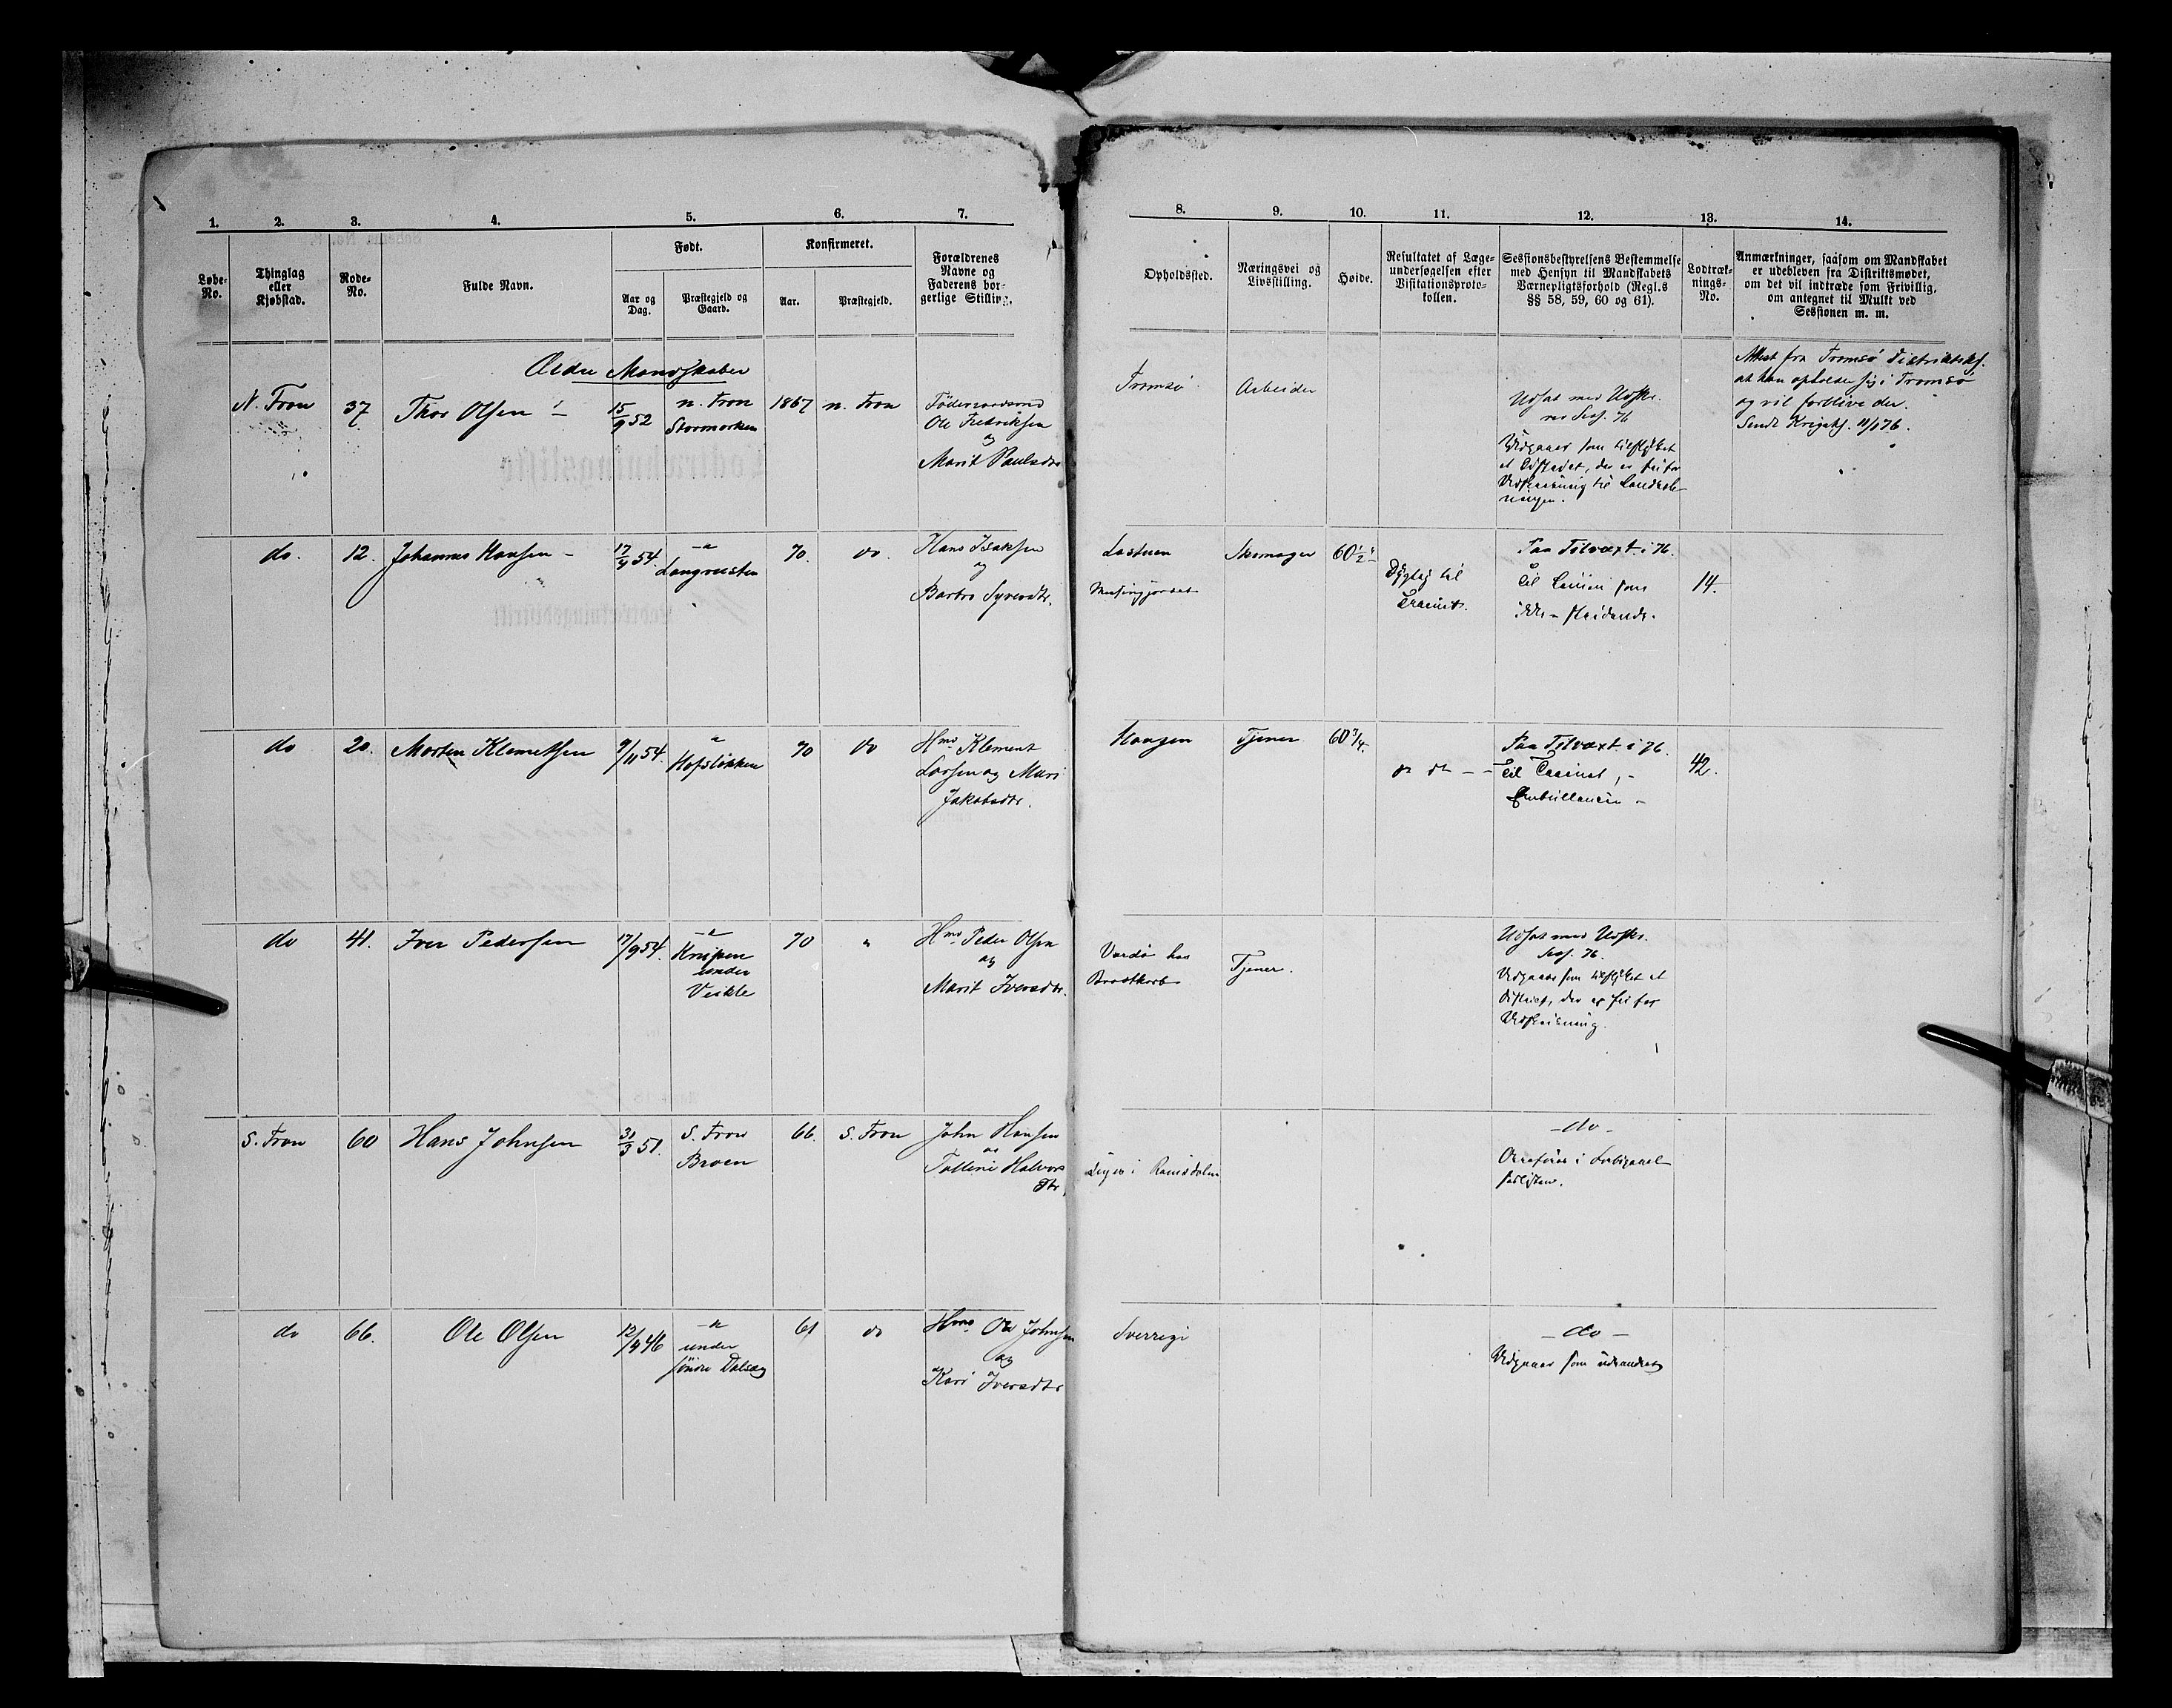 1. 2. 3. 4. 5. 6. 7. 8. 9. 10. 11. 12. 13. 14.
Løbe-No.
Thinglag eller Kjøbstad.
Rode-No.
Fulde Navn.
Født.
Aar og Dag.
Præstegjeld og Gaard.
Konfirmeret.
Aar.
Præstegjeld.
Forældrenes Navne og Faderens borgerlige Stilling.
Opholdssted.
Næringsvei og Livsstilling.
Høide.
Resultatet af Læge-
undersøgelsen efter
Visitationsproto-
kollen.
Sessionsbestyrelsens Bestemmelse
med Hensyn til Mandskabets
Værnepligtsforhold (Regl.s
§§ 58, 59, 60 og 61).
Lodtræk-
nings-
No.
Anmærkninger, saasom om Mandskabet
er udebleven fra Distriktsmødet,
om det vil indtræde som Frivillig,
om antegnet til Mulkt ved
Sessionen m. m.
Ældre Mandskaber
N. Fron 37 Thor Olsen
15/9 52
N. Fron
Stormorken
1867 N. Fron
Føderaadsmd
Ole Fredriksen
og
Marit Paulsdtr
Tromsø
Arbeider
Udsat med Udskr.
ved Sess. 76
Udgaaer som tilflyttet
et Distrikt, der er fri for
Udskrivning til Landvæb-
ningen.
Attest fra Tromsø Distriktskf.
at han opholder sig i Tromsø
og vil forblive der.
Sendt Krigskf.
do. 12. Johannes Hansen
17/4 54.
Langrusten
70. do.
Hans Isaksen
og
Barbro Syverdtr.
Skomager
60 1/2"
Dygtig til
Trainet.
Paa Tilvæxt i 76.
Til Linien som
ikke-stridende.
14.
do 20. Morten Klemetsen
9/11 54.
Hofsløkken
70 do
Hmd Klement
Larsen og Mari
Jakobsdtr.
Haugen
Tjener
60 3/4.
do do
Paa Tilvæxt i 76.
Til Trainet,
Ambullancen
42.
do 41. Iver Pedersen
17/9 54.
under
Veikle
70 "
Hmd Peder Olsen
og
Marit Iversdtr.
Vardø hos
Brodtkorb
Tjener.
Udsat med Udskr.
Sess. 76.
Udgaaer som tilflyttet et
Distrikt, der er fri for
Udskrivning.
S. Fron 60 Hans Johnsen
S. Fron
Broen
66. S. Fron
John Hansen
og
Halvors
dtr.
i Romsdalen
- do -
do 66. Ole Olsen
12/4 46
under
søndre Dalseg
61 do
Hmd Ole Johnsen
og
Kari Iversdtr
Sverrige
- do -
Udgaaer som udvandret